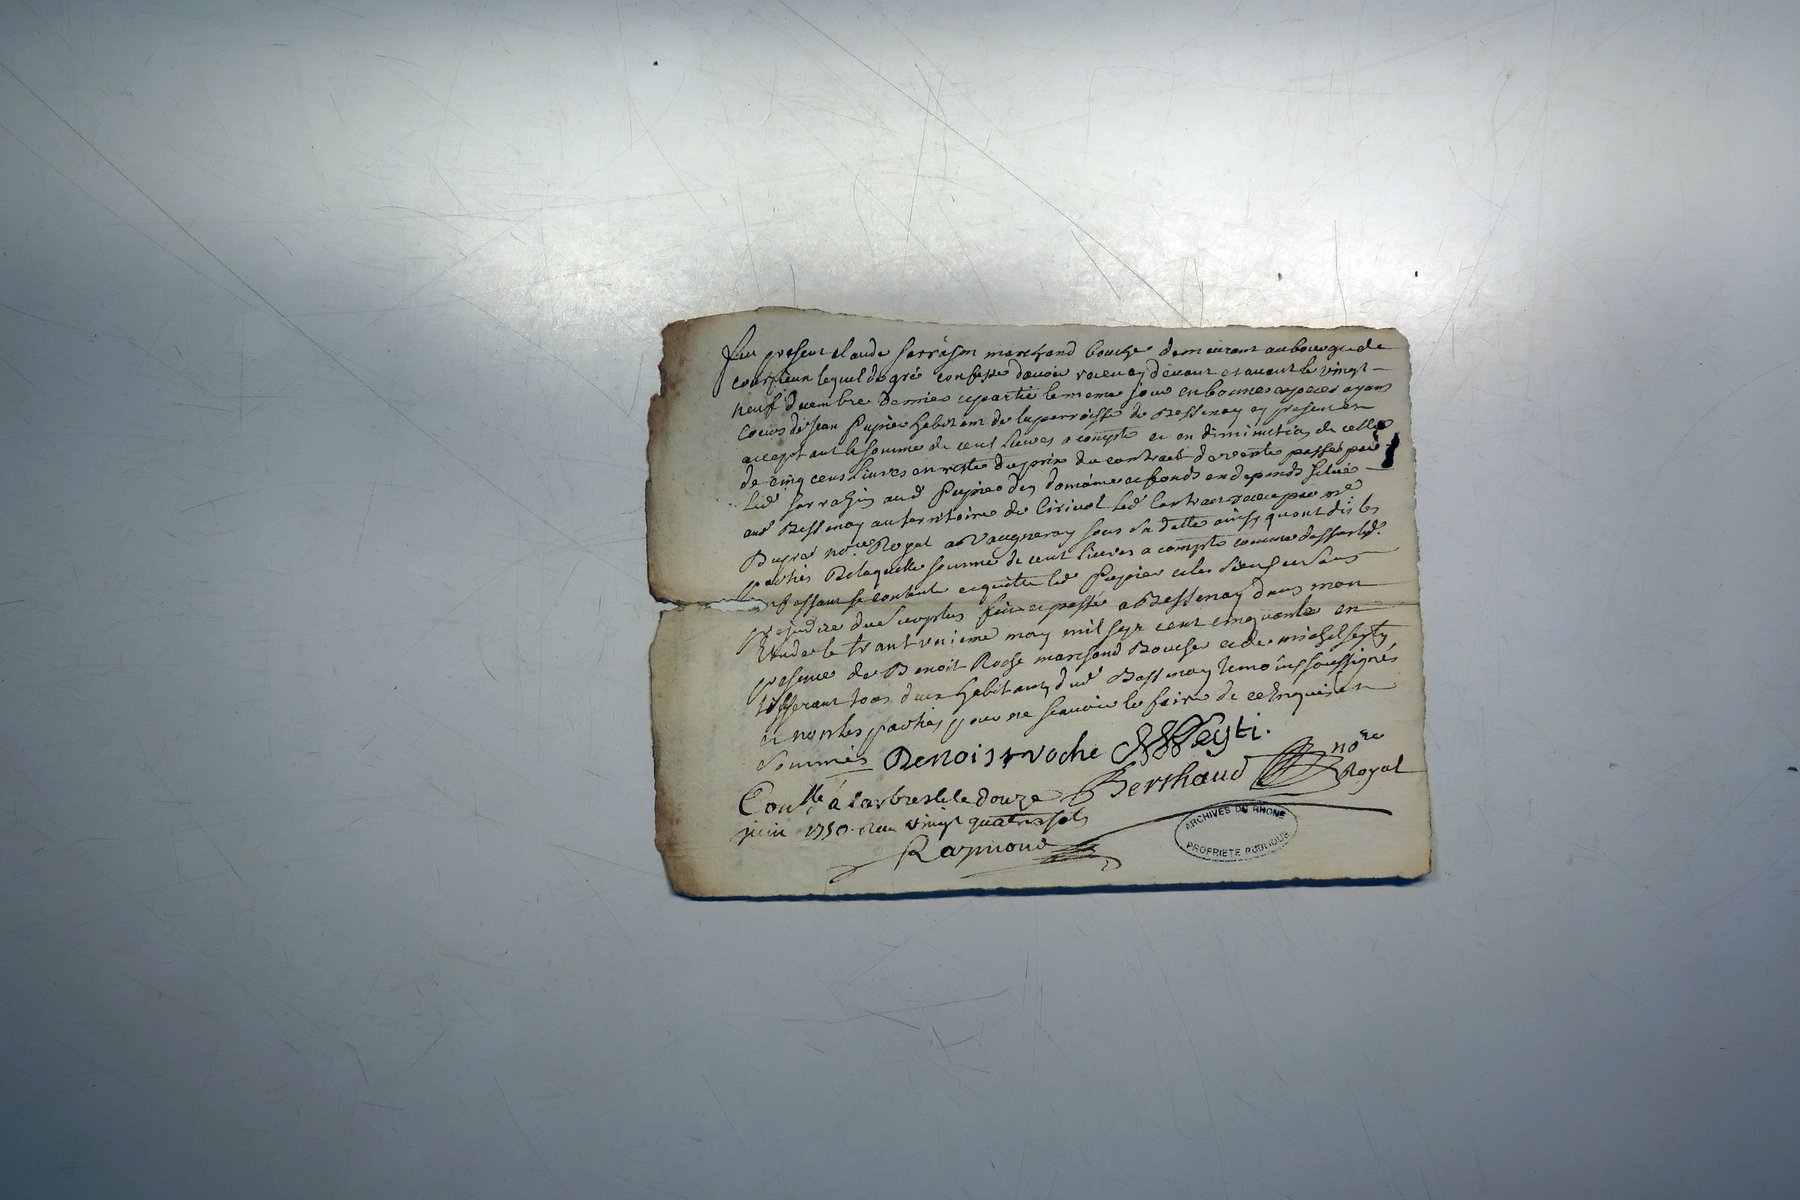 fut present claude sarrason marchand boucher demeurant au bourg de
courzieu lequel de gré confesse davoir receu cy devant et avant le vingt
neuf decembre dernier et partie le meme jour en bonnes especes ayans
cours de Jean Pupier habitant de la parroisse de Bessenay cy present et
acceptant la somme de cent livres a compte et en diminution de celle
de cinq cens livres en reste du prix du contract de vente passé par
led sarrasin aud Pupier des domaine et fonds en dependt situés
aud Bessenay au territoire de led contract receu par me
Dupré nore Royal a Vaugneray sous sa datte ainsy quont dit les
parties De laquelle somme de cent livres a compte comme dessus led.
confessant se content et quitte led Pupier et les siens sans
prejudice du surplus fait et passé a Bessenay dans mon
Etude le trant unieme may mil sept cent cinquante en
presence de Benoit Roche marchand Boucher et de michel seyty
tisserant tous deux habitants dud Bessenay temoins soussignés
et non les parties pour ne scavoir le faire de ce Enquis et
sommés Benoist roche M Seyti.
Berthaud nore
Royal
Conllé á Larbresle le douze
juin 1750. Reçu vingt quatre sols
Raymond
ARCHIVES DU RHONE
PROPRIETE PUBLIQUE